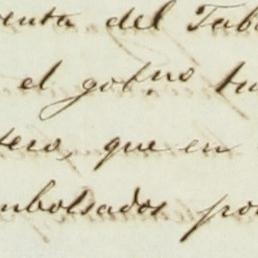 enta del Tab
el gob.no tu
sero, que en
mbolsados por